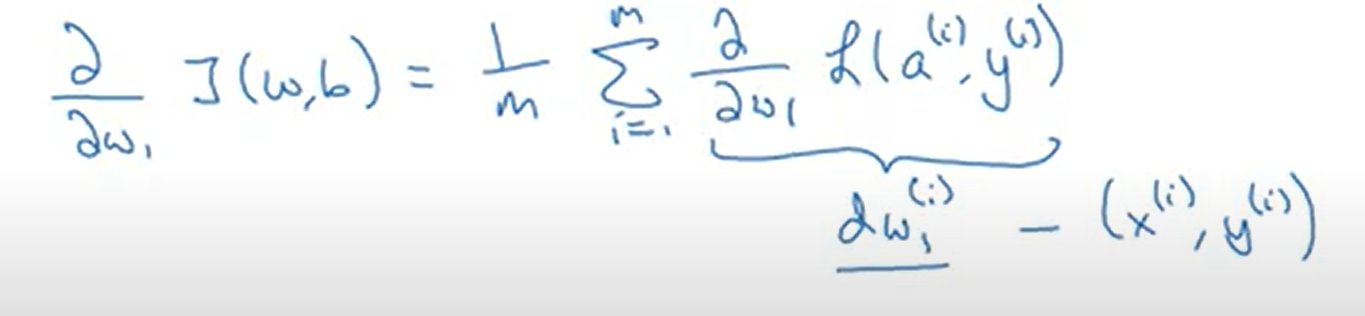 ∂/∂w₁ J(w,b) = 1/m ∑ᵢ₌₁ᵐ ∂/∂w₁ ℒ(a⁽ⁱ⁾, y⁽ⁱ⁾)
dw₁⁽ⁱ⁾ — (x⁽ⁱ⁾, y⁽ⁱ⁾)